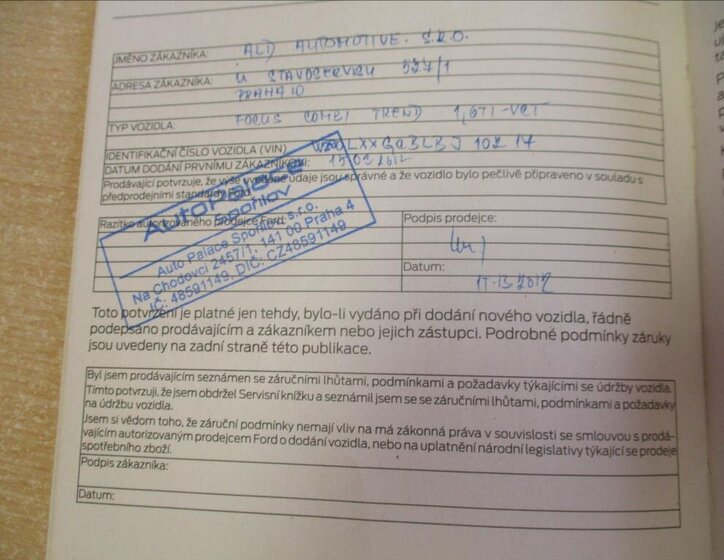 JMÉNO ZÁKAZNÍKA: ALD AUTOMOTIVE. S.R.O.
ADRESA ZÁKAZNÍKA: U STAVOSERVISU 527/1
PRAHA 10
TYP VOZIDLA: FOCUS COMBI TREND 1,6TI-VCT
IDENTIFIKAČNÍ ČÍSLO VOZIDLA (VIN)
DATUM DODÁNÍ PRVNÍMU ZÁKAZNÍKOVI:
Prodávající potvrzuje, že výše uvedené údaje jsou správné a že vozidlo bylo pečlivě připraveno v souladu s
předprodejními standardy Ford.
Razítko autorizovaného prodejce Ford:
AutoPalace
Spořilov
Auto Palace Spořilov s.r.o.
Na Chodovci 2457/1, 141 00 Praha 4
IČ: 48591149, DIČ: CZ48591149
Podpis prodejce:
Datum:
Toto potvrzení je platné jen tehdy, bylo-li vydáno při dodání nového vozidla, řádně
podepsáno prodávajícím a zákazníkem nebo jejich zástupci. Podrobné podmínky záruky
jsou uvedeny na zadní straně této publikace.
Byl jsem prodávajícím seznámen se záručními lhůtami, podmínkami a požadavky týkajícími se údržby vozidla.
Tímto potvrzuji, že jsem obdržel Servisní knížku a seznámil jsem se se záručními lhůtami, podmínkami a požadavky
na údržbu vozidla.
Jsem si vědom toho, že záruční podmínky nemají vliv na má zákonná práva v souvislosti se smlouvou s prodá-
vajícím autorizovaným prodejcem Ford o dodání vozidla, nebo na uplatnění národní legislativy týkající se prodeje
spotřebního zboží.
Podpis zákazníka:
Datum: